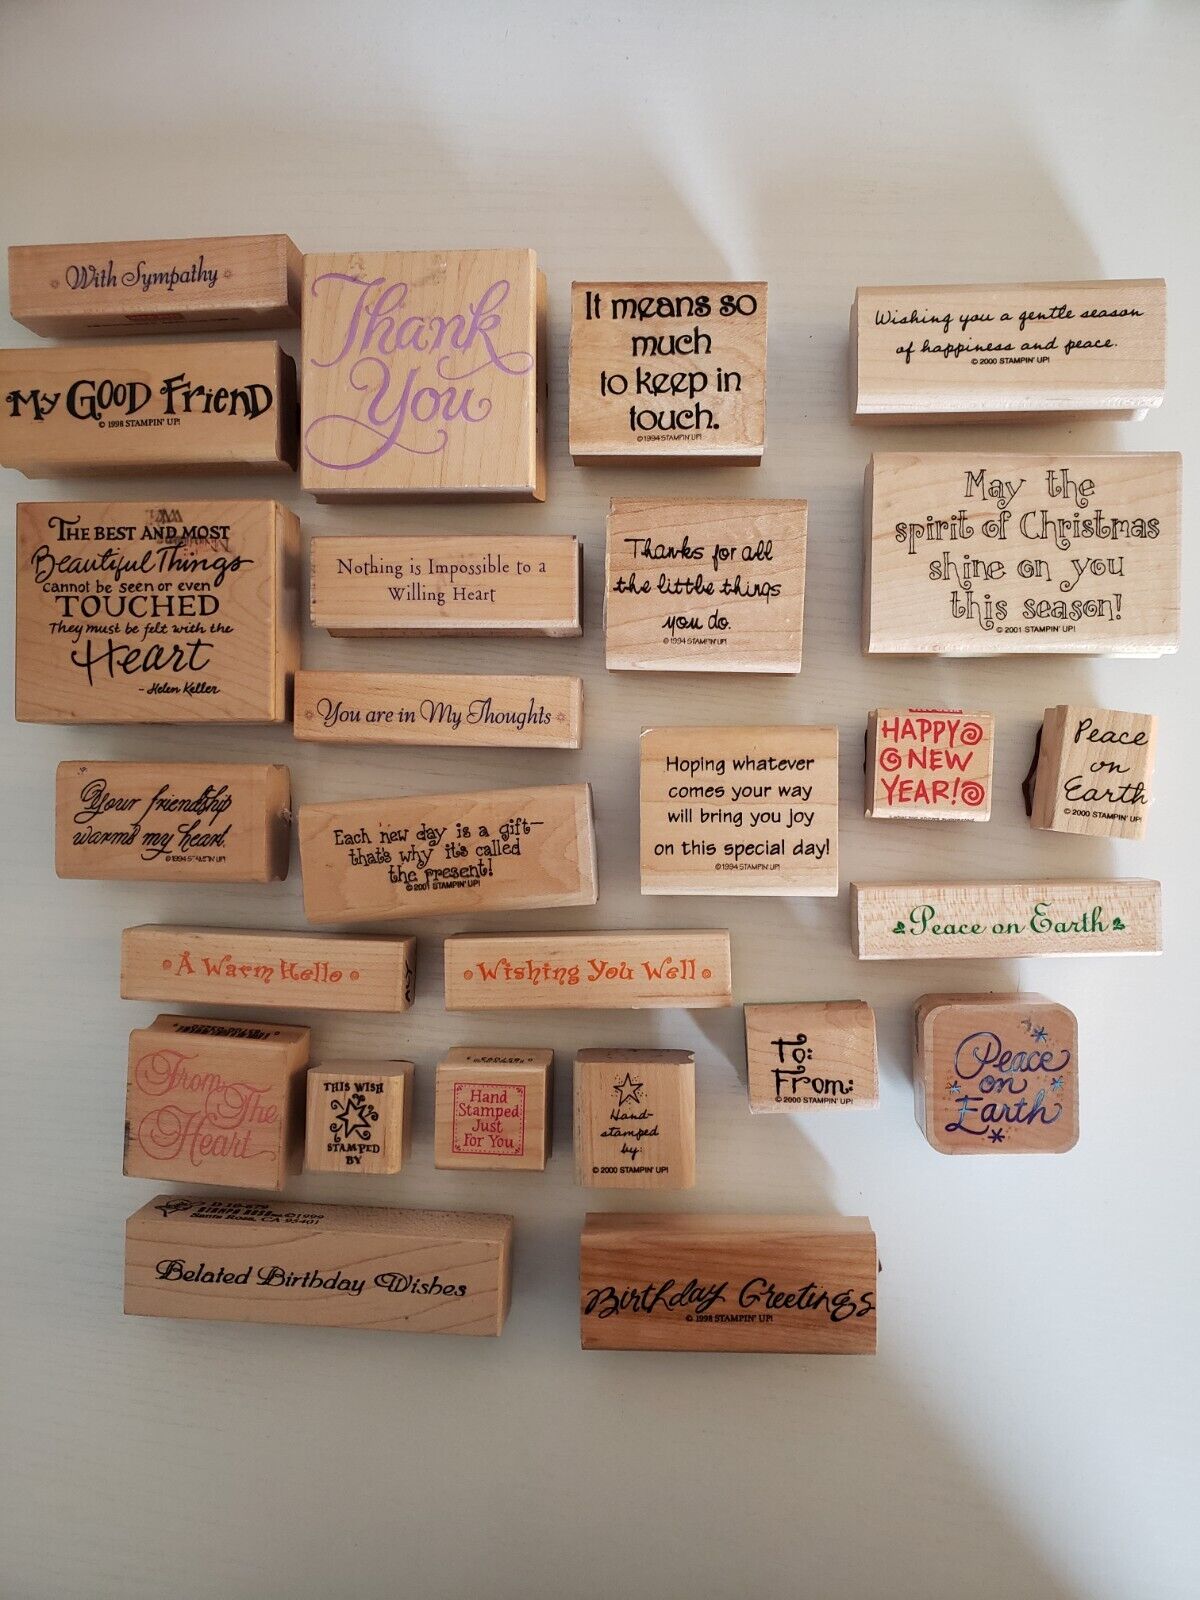 With Sympathy
My GOOD FrienD
© 1998 STAMPIN' UP!
Thank
You
It means so
much
to keep in
touch.
© 1994 STAMPIN' UP!
Wishing you a gentle season
of happiness and peace.
© 2000 STAMPIN' UP!
May the
spirit of Christmas
shine on you
this season!
© 2001 STAMPIN' UP!
THE BEST AND MOST
Beautiful Things
cannot be seen or even
TOUCHED
They must be felt with the
Heart
- Helen Keller
Nothing is Impossible to a
Willing Heart
Thanks for all
the little things
you do.
© 1994 STAMPIN' UP!
You are in My Thoughts
Your friendship
warms my heart.
© 1994 STAMPIN' UP!
Each new day is a gift—
that's why it's called
the present!
© 2001 STAMPIN' UP!
Hoping whatever
comes your way
will bring you joy
on this special day!
© 1994 STAMPIN' UP!
HAPPY
NEW
YEAR!
Peace
on
Earth
© 2000 STAMPIN' UP!
Peace on Earth
A Warm Hello
Wishing You Well
From
The
Heart
THIS WISH
STAMPED
BY
Hand
Stamped
Just
For You
Hand-
stamped
by:
© 2000 STAMPIN' UP!
To:
From:
© 2000 STAMPIN' UP!
Peace
on
Earth
©1999
Santa Rosa, CA 95401
Belated Birthday Wishes
Birthday Greetings
© 1998 STAMPIN' UP!